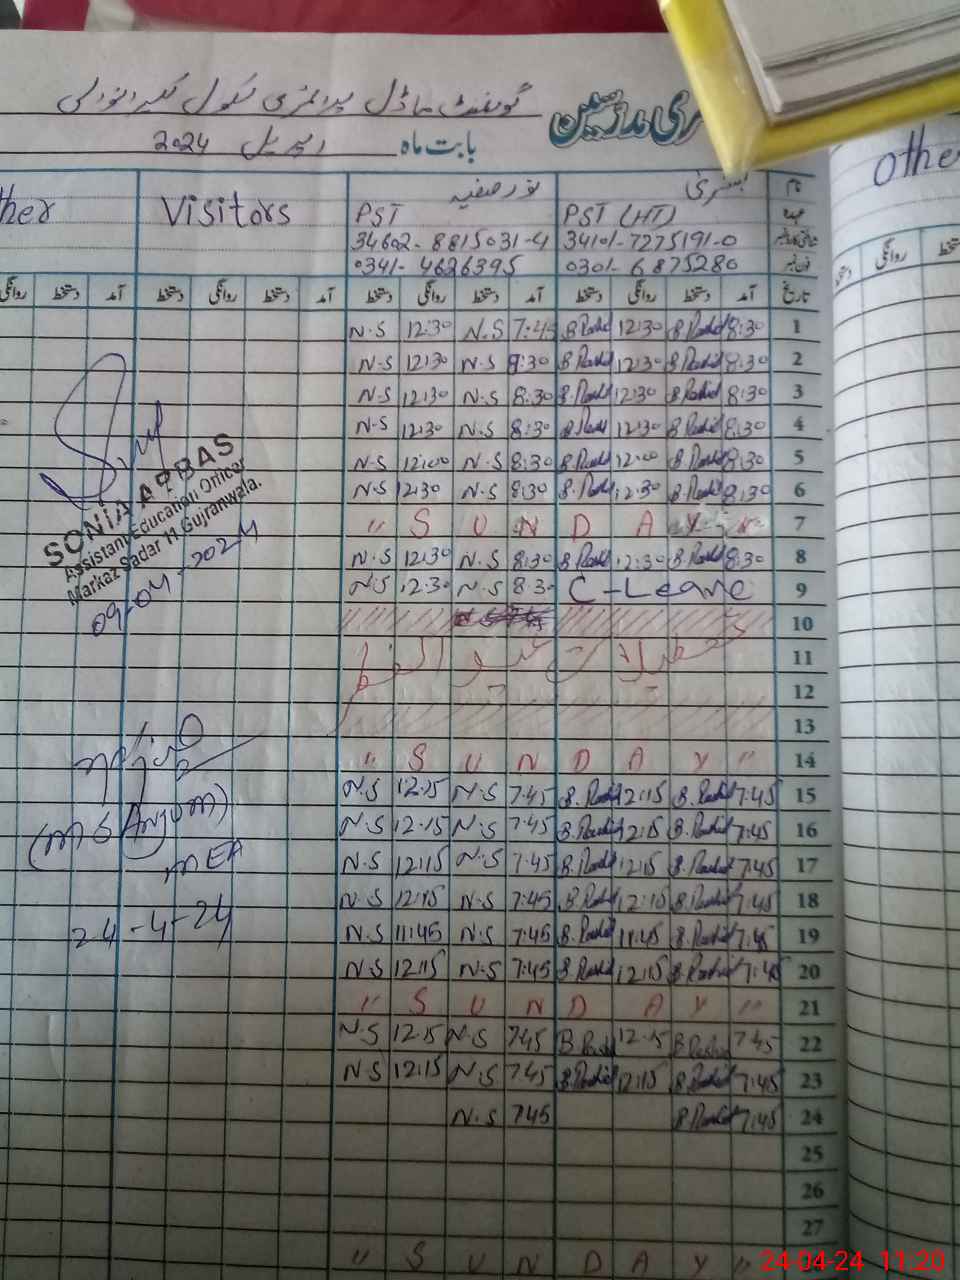 گورنمنٹ ماڈل پرائمری سکول
حاضری مدرسین
بابت ماہ اپریل 2024
نام بشریٰ نور صفیہ Visitors
عہدہ PST (HT) PST
34101-7275191-0 34602-8815031-4
فون نمبر 0301-6875280 0341-4626395
تاریخ آمد دستخط روانگی دستخط آمد دستخط روانگی دستخط آمد دستخط روانگی دستخط آمد دستخط روانگی
1 8:30 B.Rashid 12:30 B.Rashid 7:45 N.S 12:30 N.S
2 8:30 B.Rashid 12:30 B.Rashid 8:30 N.S 12:30 N.S
3 8:30 B.Rashid 12:30 B.Rashid 8:30 N.S 12:30 N.S
4 8:30 B.Rashid 12:30 B.Rashid 8:30 N.S 12:30 N.S
5 8:30 B.Rashid 12:00 B.Rashid 8:30 N.S 12:00 N.S
6 8:30 B.Rashid 12:30 B.Rashid 8:30 N.S 12:30 N.S
7 " S U N D A Y "
8 8:30 B.Rashid 12:30 B.Rashid 8:30 N.S 12:30 N.S
9 C-Leave 8:30 N.S 12:30 N.S
10
11 تعطیلات عید الفطر
12
13
14 " S U N D A Y "
15 7:45 B.Rashid 12:15 B.Rashid 7:45 N.S 12:15 N.S
16 7:45 B.Rashid 12:15 B.Rashid 7:45 N.S 12:15 N.S
17 7:45 B.Rashid 12:15 B.Rashid 7:45 N.S 12:15 N.S
18 7:45 B.Rashid 12:15 B.Rashid 7:45 N.S 12:15 N.S
19 7:45 B.Rashid 11:45 B.Rashid 7:45 N.S 11:45 N.S
20 7:45 B.Rashid 12:15 B.Rashid 7:45 N.S 12:15 N.S
21 " S U N D A Y "
22 7:45 B.Rashid 12:15 B.Rashid 7:45 N.S 12:15 N.S
23 7:45 B.Rashid 12:15 B.Rashid 7:45 N.S 12:15 N.S
24 7:45 B.Rashid 7:45 N.S
25
26
27
" S U N D A Y "
SONIA ABBAS
Assistant Education Officer
Markaz Sadar 11 Gujranwala.
09-04-2024
(MS Anjum)
MEA
24-4-24
Othe
روانگی
24-04-24 11:20